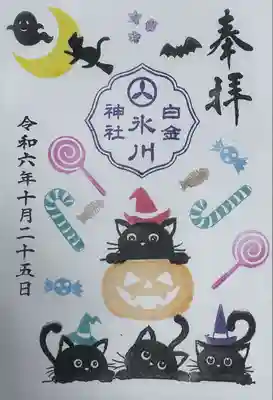 奉拝
白金
氷川
神社
令和六年十月二十五日